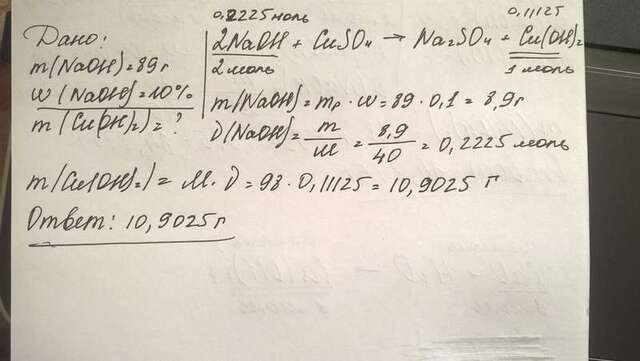 Дано:
m(NaOH)=89г
w(NaOH)=10%
m(Cu(OH)₂)=?
0,2225 моль
0,11125
2NaOH + CuSO₄ → Na₂SO₄ + Cu(OH)₂
2 моль
1 моль
m(NaOH)= mр · w = 89 · 0,1 = 8,9г
ν(NaOH)= m/M = 8,9/40 = 0,2225 моль
m(Cu(OH)₂)= M · ν = 98 · 0,11125 = 10,9025 г
Ответ: 10,9025г